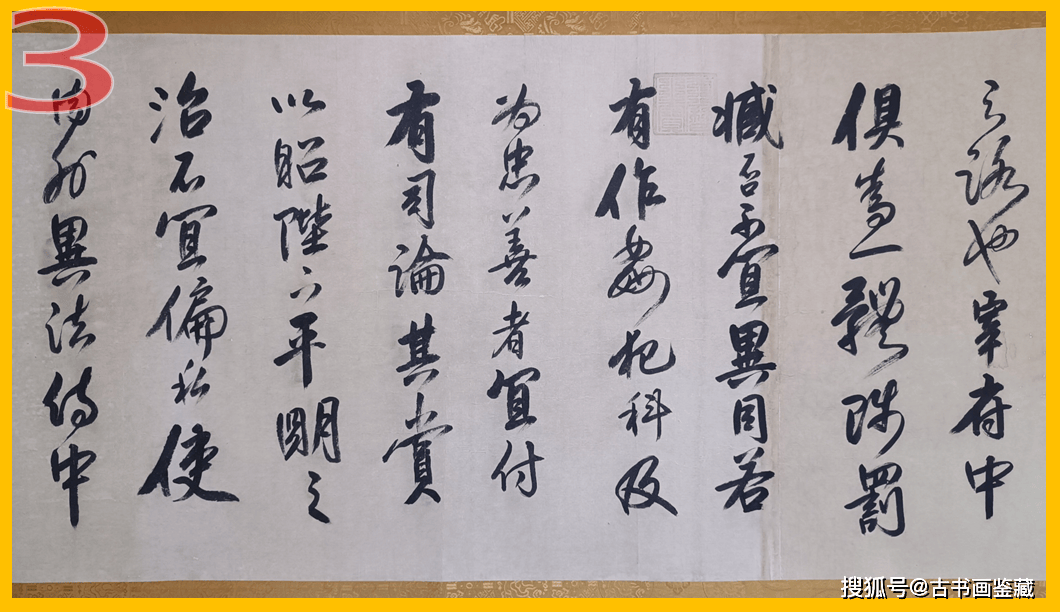 3
之路也宰府中
俱為一體陟罰
臧否不宜異同若
有作姦犯科及
為忠善者宜付
有司論其賞
以昭陛下平朙之
治不宜偏私使
內外異法侍中
搜狐号@古书画鉴藏